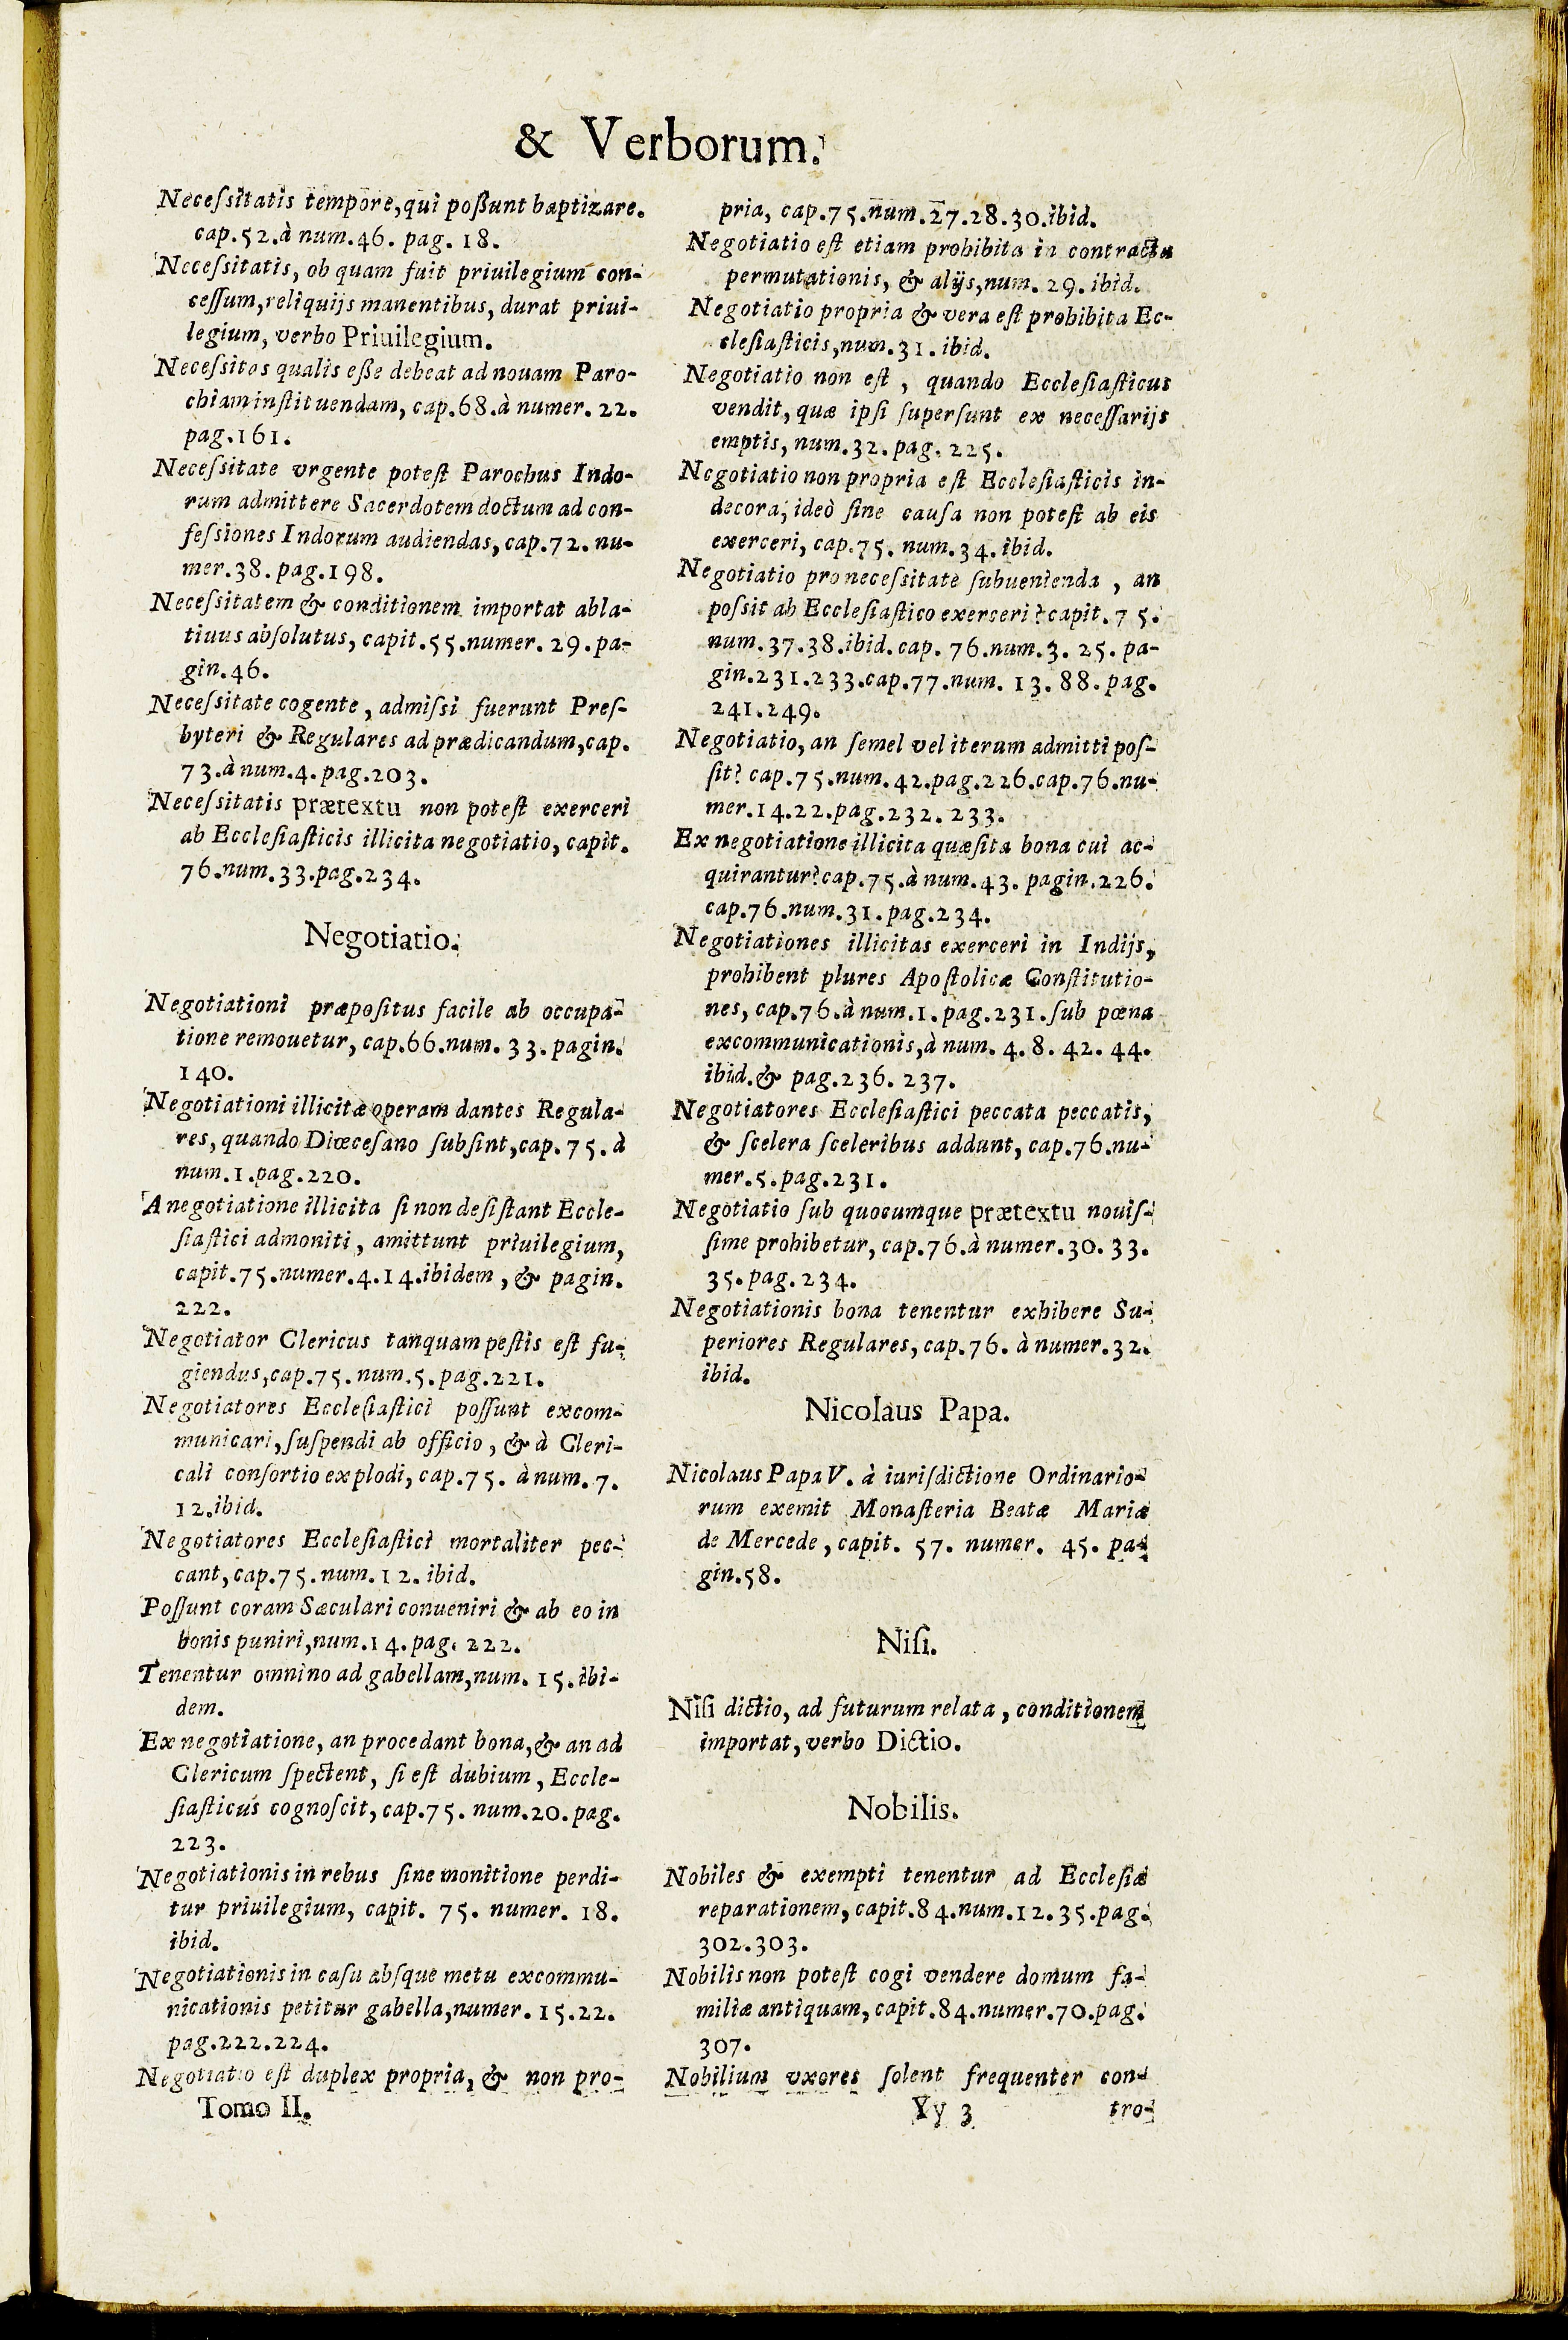 & Verborum.
Neceſsitatis tempore, qui poßunt baptizare.
cap. 52. à num. 46. pag. 18.
Neceſsitatis, ob quam fuit priuilegium con-
ceſſum, reliquijs manentibus, durat priui-
legium, verbo Priuilegium.
Neceſsitas qualis eße debeat ad nouam Paro-
chiam inſtituendam, cap. 68. à numer. 22.
pag. 161.
Neceſsitate vrgente poteſt Parochus Indo-
rum admittere Sacerdotem doctum ad con-
feſsiones Indorum audiendas, cap. 72. nu-
mer. 38. pag. 198.
Neceſsitatem & conditionem importat abla-
tiuus abſolutus, capit. 55. numer. 29. pa-
gin. 46.
Neceſsitate cogente, admiſsi fuerunt Preſ-
byteri & Regulares ad prædicandum, cap.
73. à num. 4. pag. 203.
Neceſsitatis prætextu non poteſt exerceri
ab Eccleſiaſticis illicita negotiatio, capit.
76. num. 33. pag. 234.
Negotiatio.
Negotiationi præpoſitus facile ab occupa-
tione remouetur, cap. 66. num. 33. pagin.
140.
Negotiationi illicitæ operam dantes Regula-
res, quando Diœceſano ſubſint, cap. 75. à
num. 1. pag. 220.
A negotiatione illicita ſi non deſiſtant Eccle-
ſiaſtici admoniti, amittunt priuilegium,
capit. 75. numer. 4. 14. ibidem, & pagin.
222.
Negotiator Clericus tanquam peſtis eſt fu-
giendus, cap. 75. num. 5. pag. 221.
Negotiatores Eccleſiaſtici poſſunt excom-
municari, ſuſpendi ab officio, & à Cleri-
cali conſortio explodi, cap. 75. à num. 7.
12. ibid.
Negotiatores Eccleſiaſtici mortaliter pec-
cant, cap. 75. num. 12. ibid.
Poſſunt coram Sæculari conueniri & ab eo in
bonis puniri, num. 14. pag. 222.
Tenentur omnino ad gabellam, num. 15. ibi-
dem.
Ex negotiatione, an procedant bona, & an ad
Clericum ſpectent, ſi eſt dubium, Eccle-
ſiaſticus cognoſcit, cap. 75. num. 20. pag.
223.
Negotiationis in rebus ſine monitione perdi-
tur priuilegium, capit. 75. numer. 18.
ibid.
Negotiationis in caſu abſque metu excommu-
nicationis petitur gabella, numer. 15. 22.
pag. 222. 224.
Negotiatio eſt duplex propria, & non pro-
Tomo II.
pria, cap. 75. num. 27. 28. 30. ibid.
Negotiatio eſt etiam prohibita in contractu
permutationis, & alijs, num. 29. ibid.
Negotiatio propria & vera eſt prohibita Ec-
cleſiaſticis, num. 31. ibid.
Negotiatio non eſt, quando Eccleſiaſticus
vendit, quæ ipſi ſuperſunt ex neceſſarijs
emptis, num. 32. pag. 225.
Negotiatio non propria eſt Eccleſiaſticis in-
decora, ideò ſine cauſa non poteſt ab eis
exerceri, cap. 75. num. 34. ibid.
Negotiatio pro neceſsitate ſubuenienda, an
poſsit ab Eccleſiaſtico exerceri? capit. 75.
num. 37. 38. ibid. cap. 76. num. 3. 25. pa-
gin. 231. 233. cap. 77. num. 13. 88. pag.
241. 249.
Negotiatio, an ſemel vel iterum admitti poſ-
ſit? cap. 75. num. 42. pag. 226. cap. 76. nu-
mer. 14. 22. pag. 232. 233.
Ex negotiatione illicita quæſita bona cui ac-
quirantur? cap. 75. à num. 43. pagin. 226.
cap. 76. num. 31. pag. 234.
Negotiationes illicitas exerceri in Indijs,
prohibent plures Apoſtolicæ Conſtitutio-
nes, cap. 76. à num. 1. pag. 231. ſub pœna
excommunicationis, à num. 4. 8. 42. 44.
ibid. & pag. 236. 237.
Negotiatores Eccleſiaſtici peccata peccatis,
& ſcelera ſceleribus addunt, cap. 76. nu-
mer. 5. pag. 231.
Negotiatio ſub quocumque prætextu nouiſ-
ſime prohibetur, cap. 76. à numer. 30. 33.
35. pag. 234.
Negotiationis bona tenentur exhibere Su-
periores Regulares, cap. 76. à numer. 32.
ibid.
Nicolaus Papa.
Nicolaus Papa V. à iuriſdictione Ordinario-
rum exemit Monaſteria Beatæ Mariæ
de Mercede, capit. 57. numer. 45. pa-
gin. 58.
Niſi.
Niſi dictio, ad futurum relata, conditionem
importat, verbo Dictio.
Nobilis.
Nobiles & exempti tenentur ad Eccleſiæ
reparationem, capit. 84. num. 12. 35. pag.
302. 303.
Nobilis non poteſt cogi vendere domum fa-
miliæ antiquam, capit. 84. numer. 70. pag.
307.
Nobilium vxores ſolent frequenter con-
Yy 3 tro-